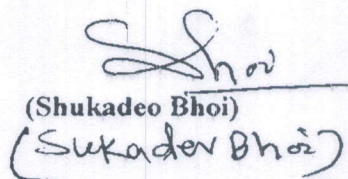 Bhoi
(Shukadeo Bhoi)
(Sukadev Bhoi)